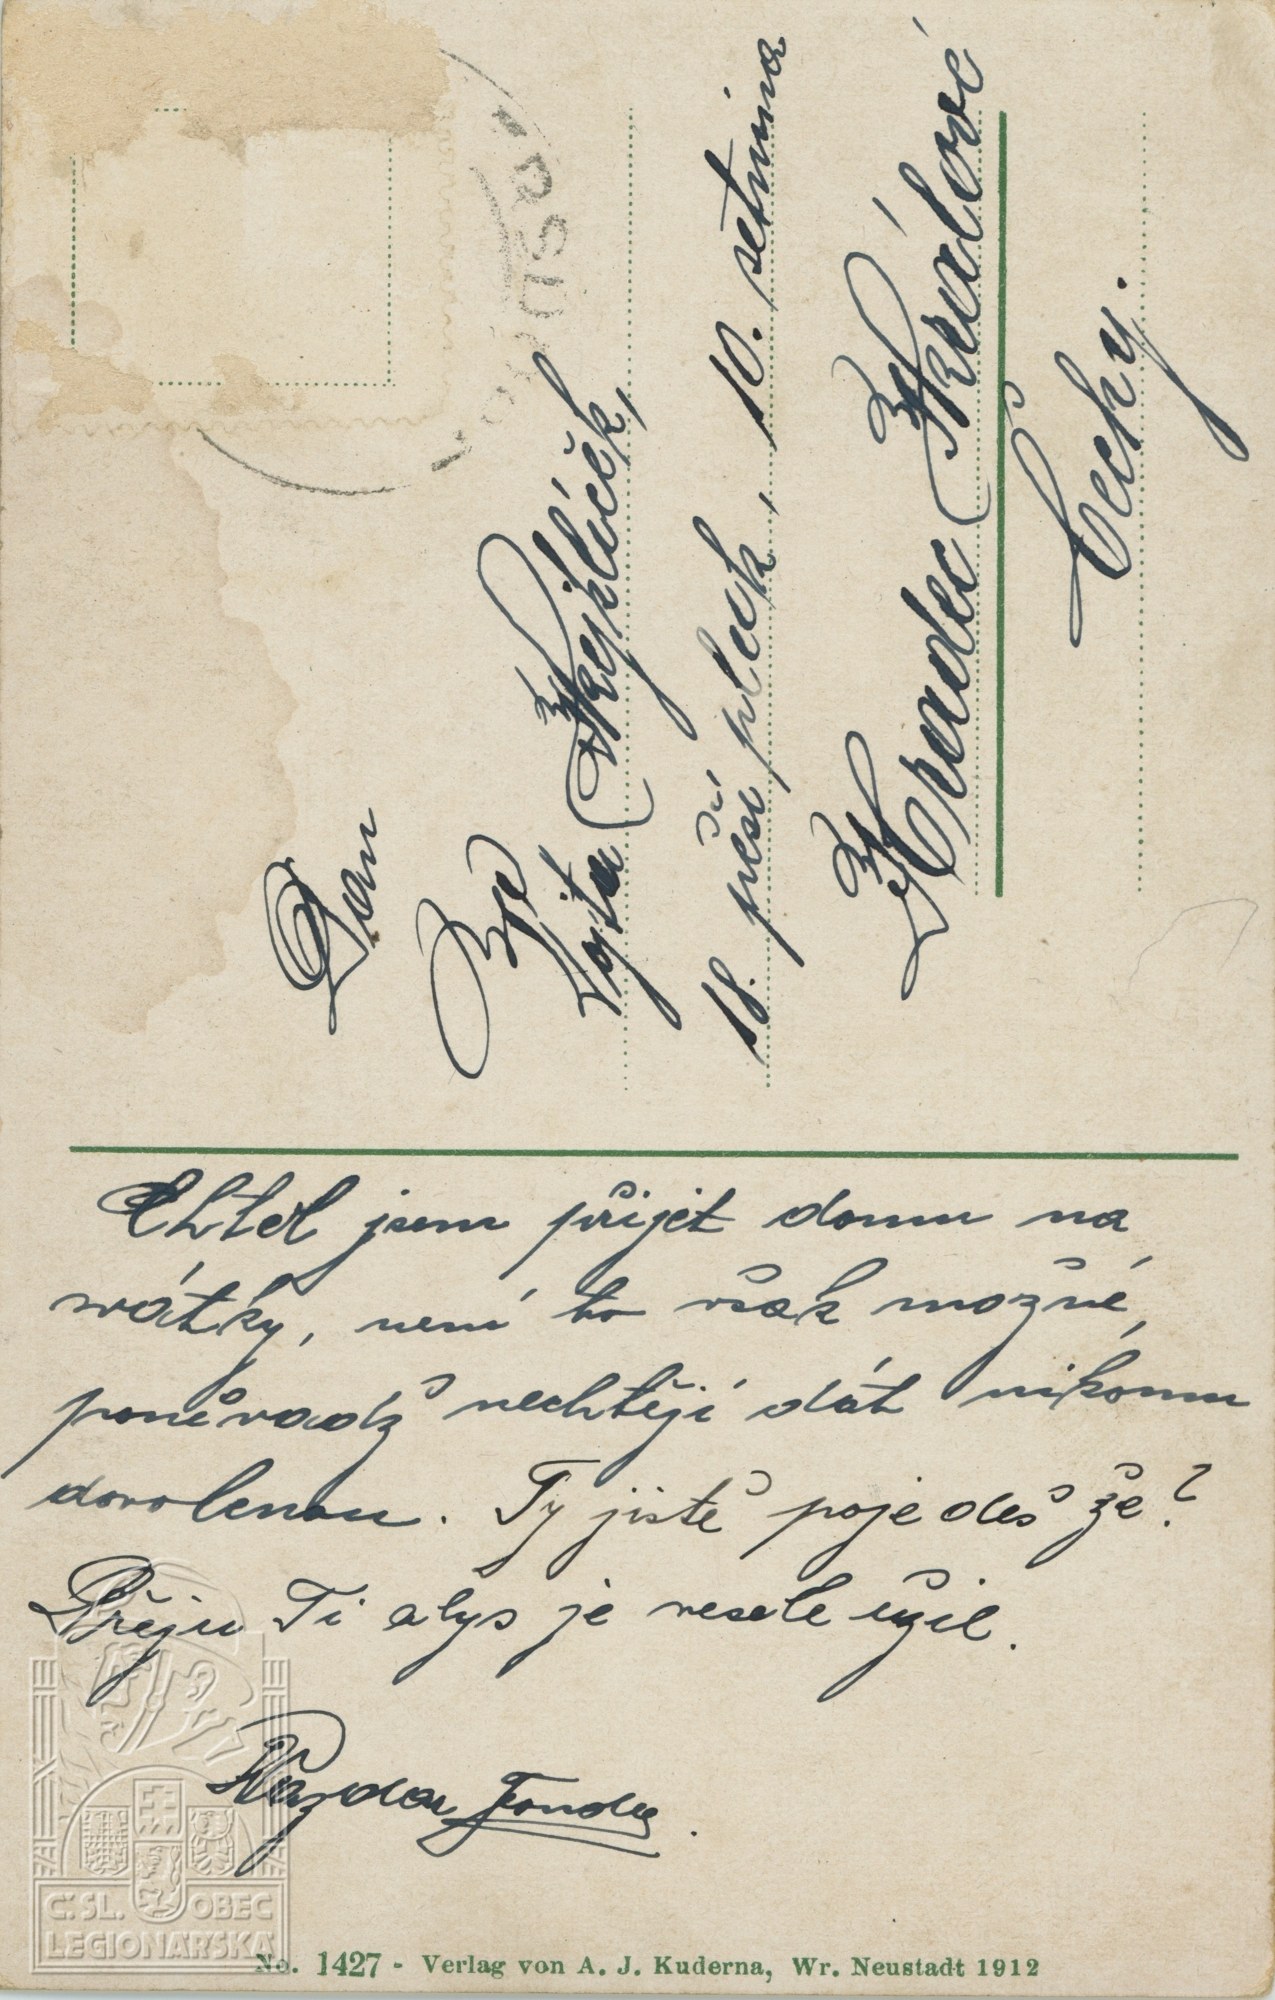 Pan
Vojta Krejhlíček,
18. pěší pluk, 10. setnina
Hradec Králové
Čechy.
Chtěl jsem přijet domu na
svátky, není to však možné,
poněvadž nechtějí dát nikomu
dovolenou. Ty jistě pojedeš že?
Přeju Ti abys je vesele užil.
Nazdar
No. 1427 - Verlag von A. J. Kuderna, Wr. Neustadt 1912
Č: SL. OBEC
LEGIONÁŘSKÁ